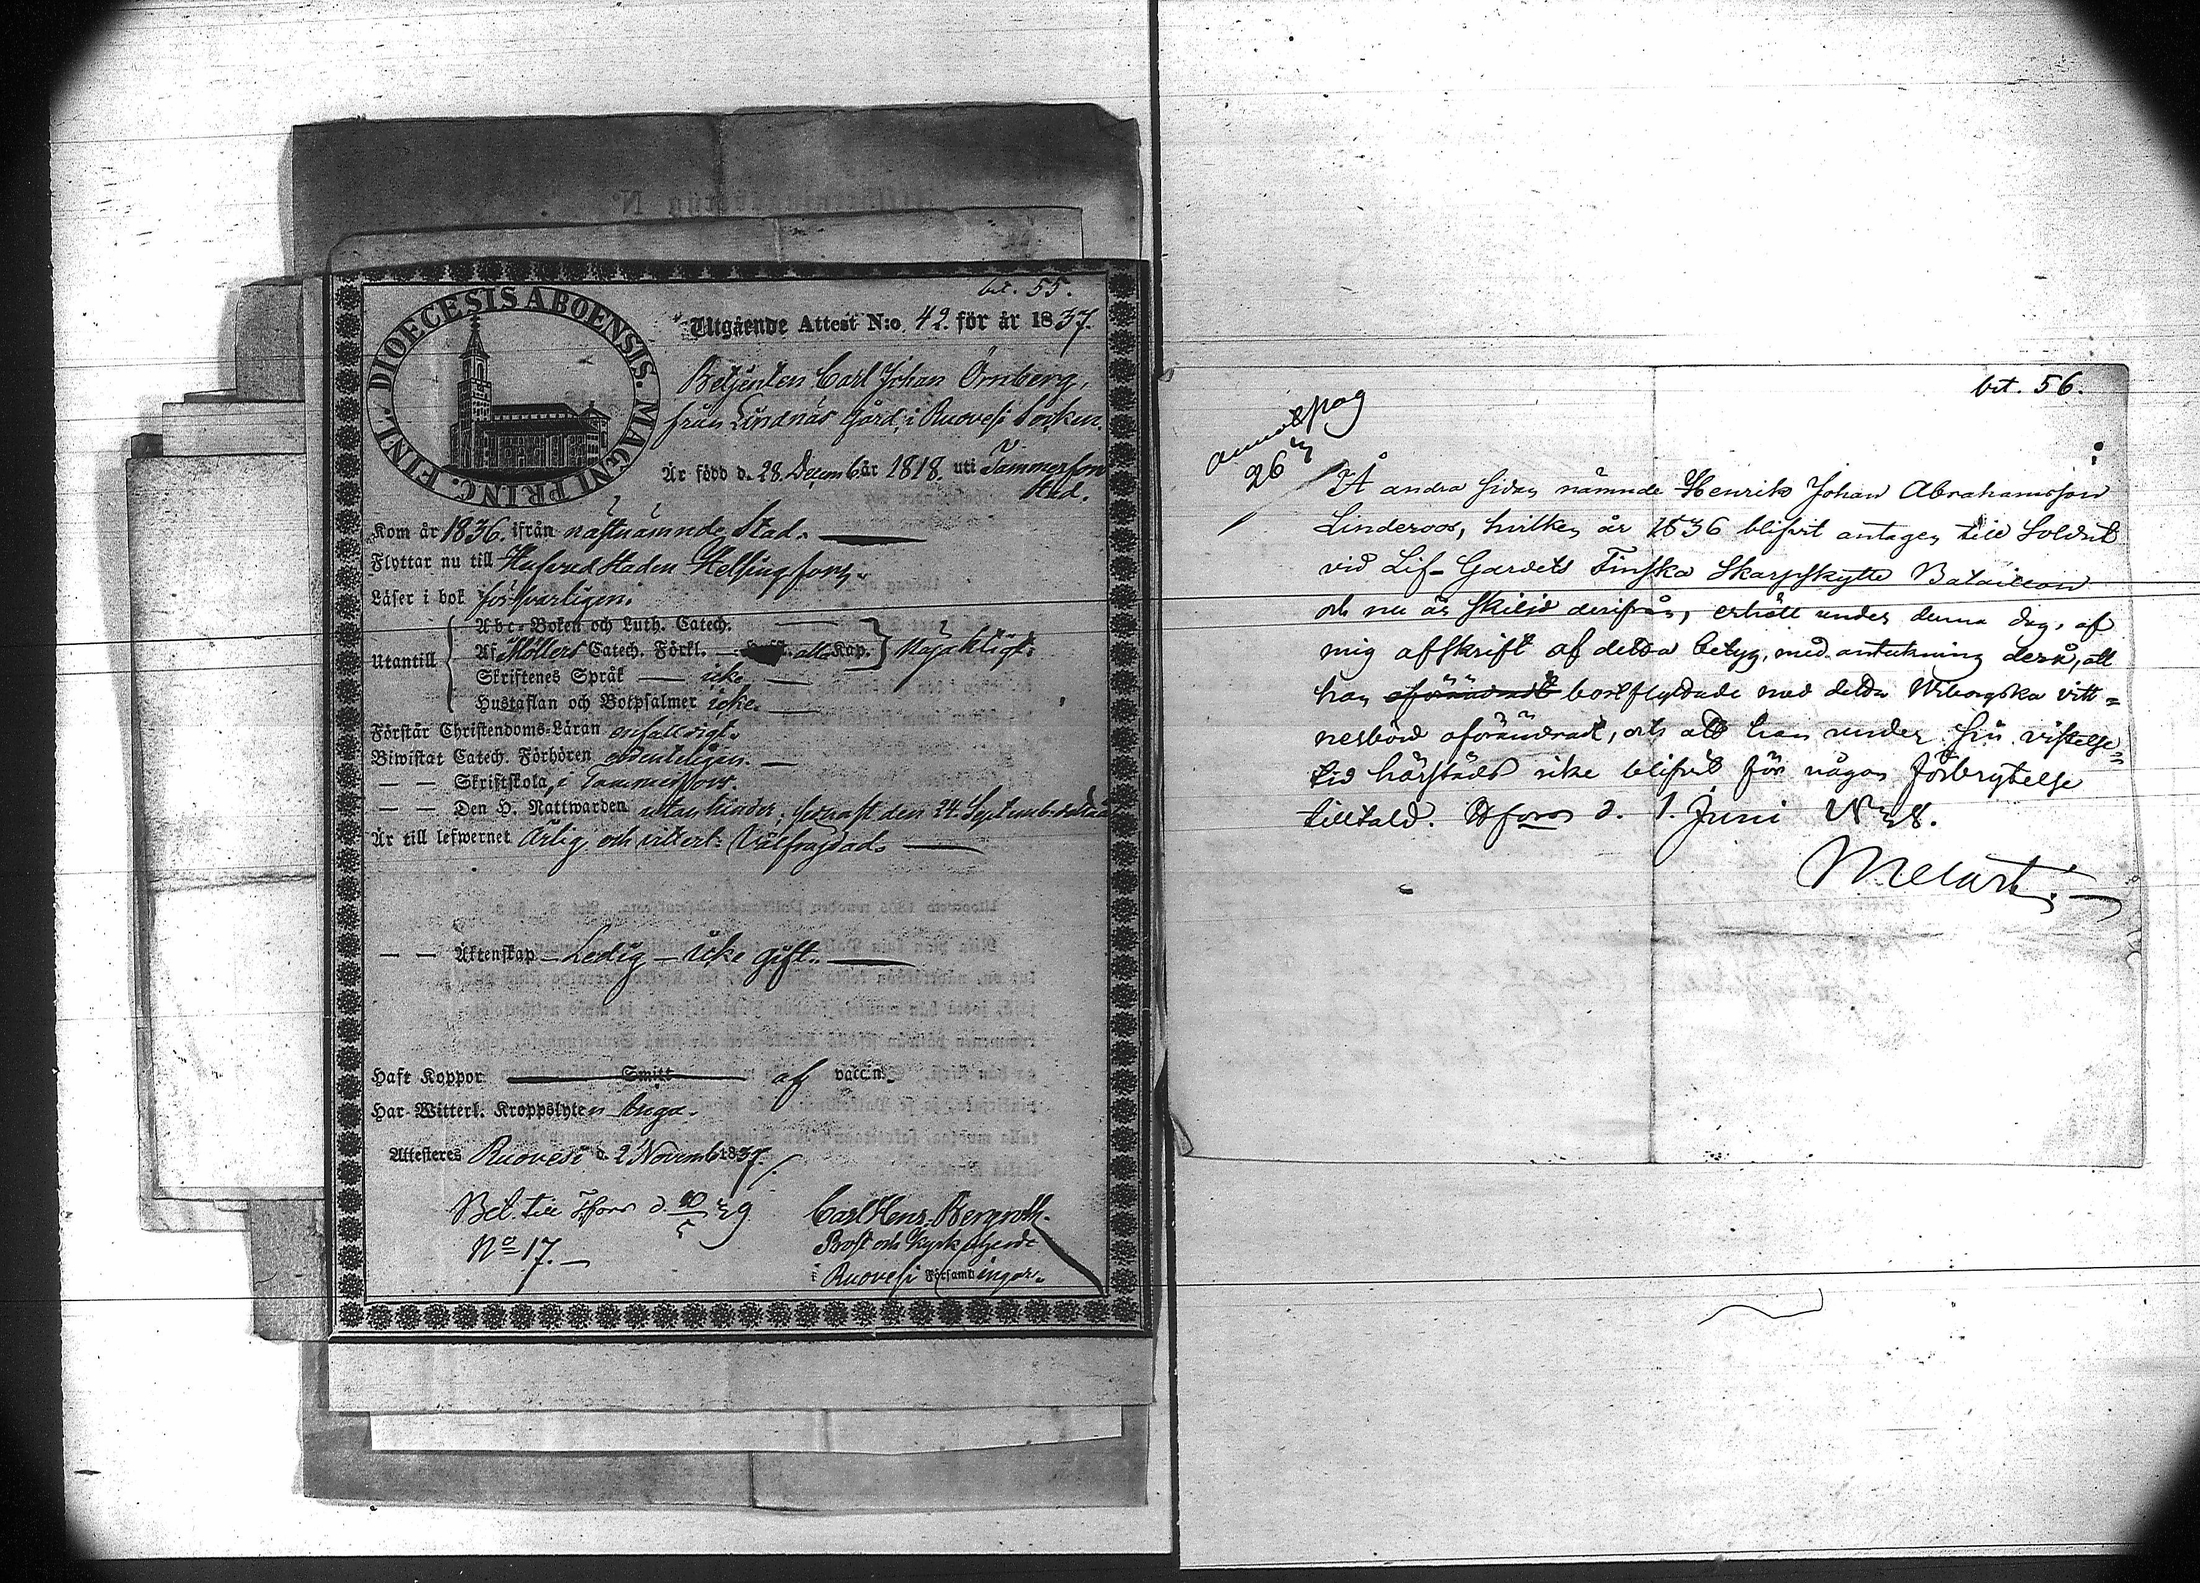 bet. 55.
FINL. DIOECESIS ABOENSIS. MAGNI PRINC.
Utgående Attest N:o 42. för år 1837.
Betjenten Carl Johan Örnberg,
från Lindnäs Gård, i Ruovesi Socken.
Är född d. 28 Decemb. år 1818. uti Tammerfors
Stad.
Kom år 1836. ifrån nästnämnde Stad.
Flyttar nu till Hufvudstaden Helsingfors.
Läser i bok försvarligen.
Utantill
Abc-Boken och Luth. Catech.
Af Möllers Catech. Förkl. alla Kap. Nöjaktigt.
Skriftenes Språk icke
Hustaflan och Botpsalmer icke.
Förstår Christendoms-Läran enfaldigt.
Biwistat Catech. Förhören ordenteligen.
— — Skriftskola, i Tammerfors.
— — Den H. Nattwarden utan hinder, senast den 24. Septemb.
Är till lefwernet Ärlig och sikert: Välfrägdad.
— — Äktenskap Ledig — icke gift.
Haft Koppor Smitt af vaccin.
Har Witterl. Kroppslyten Inga.
Attesteres Ruovesi d. 2 Novemb 1837.
Bet. till Hfors d. 10/5 39
No 17.
Carl Henr. Bergroth.
Prost och Kyrkoherde
i Ruovesi Församlingar.
bet. 56.
26
Å andra sidan nämnde Henrik Johan Abrahamsson
Linderoos, hvilken år 1836 blifvit antagen till Soldat
vid Lif-Gardets Finska Skarpskytte Bataillon
och nu är skiljd derifrån, erhöll under denna dag, af
mig afskrift af detta betyg, med anteckning derå, att
han oförändradt bortflyttade med detta Wiborgska vitt=
nesbörd oförändradt, och att han under sin vistelse=
tid härstädes icke blifvit för någon förbrytelse
tilltald. Hfors d. 1. Juni 1838.
Melart.